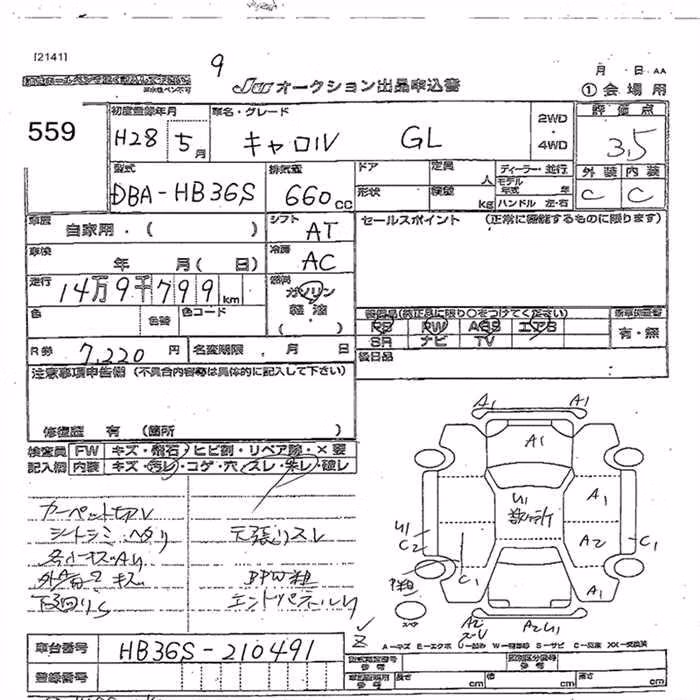 [2141]
9
JU オークション出品申込書
月 日 AA
① 会場用
559
初度登録年月
車名・グレード
2WD
・
4WD
評価点
H28 5月
キャロル GL
3.5
型式
排気量
ドア
定員
人
ディーラー・並行
外装 内装
DBA-HB36S
660cc
形状
積載
kg
モデル年式 年
ハンドル 左・右
C C
車歴
自家用・( )
シフト
AT
セールスポイント (正常に機能するものに限ります)
車検
年 月( 日)
冷房
AC
走行
14万9千799km
燃料
ガソリン
軽油
・( )
色
色替
色コード
装備品(純正品に限り○をつけてください)
PS PW ABS エアB
SR ナビ TV
有・無
R券 7,220円
名変期限 月 日
後日品
注意事項申告欄 (不具合内容等は具体的に記入して下さい)
修復歴 有 (箇所 )
検査員
記入欄
FW キズ・飛石・ヒビ割・リペア跡・×要
内装 キズ・汚レ・コゲ・穴・スレ・未レ・破レ
カーペット切レ
シートシミ ヘタリ
天張リスレ
各小キズ・AU
外A・2キズ
下回りS
エンドパネルU
A1 A1
A1
U1
A1
U1
C2
A2
C1
C1
A1
A2
A2U1
スペア
A=キズ E=エクボ U=凹み W=補修跡 S=サビ C=腐食 XX=交換済
車台番号
HB36S-210491
登録番号
長さ cm
幅 cm
高さ cm